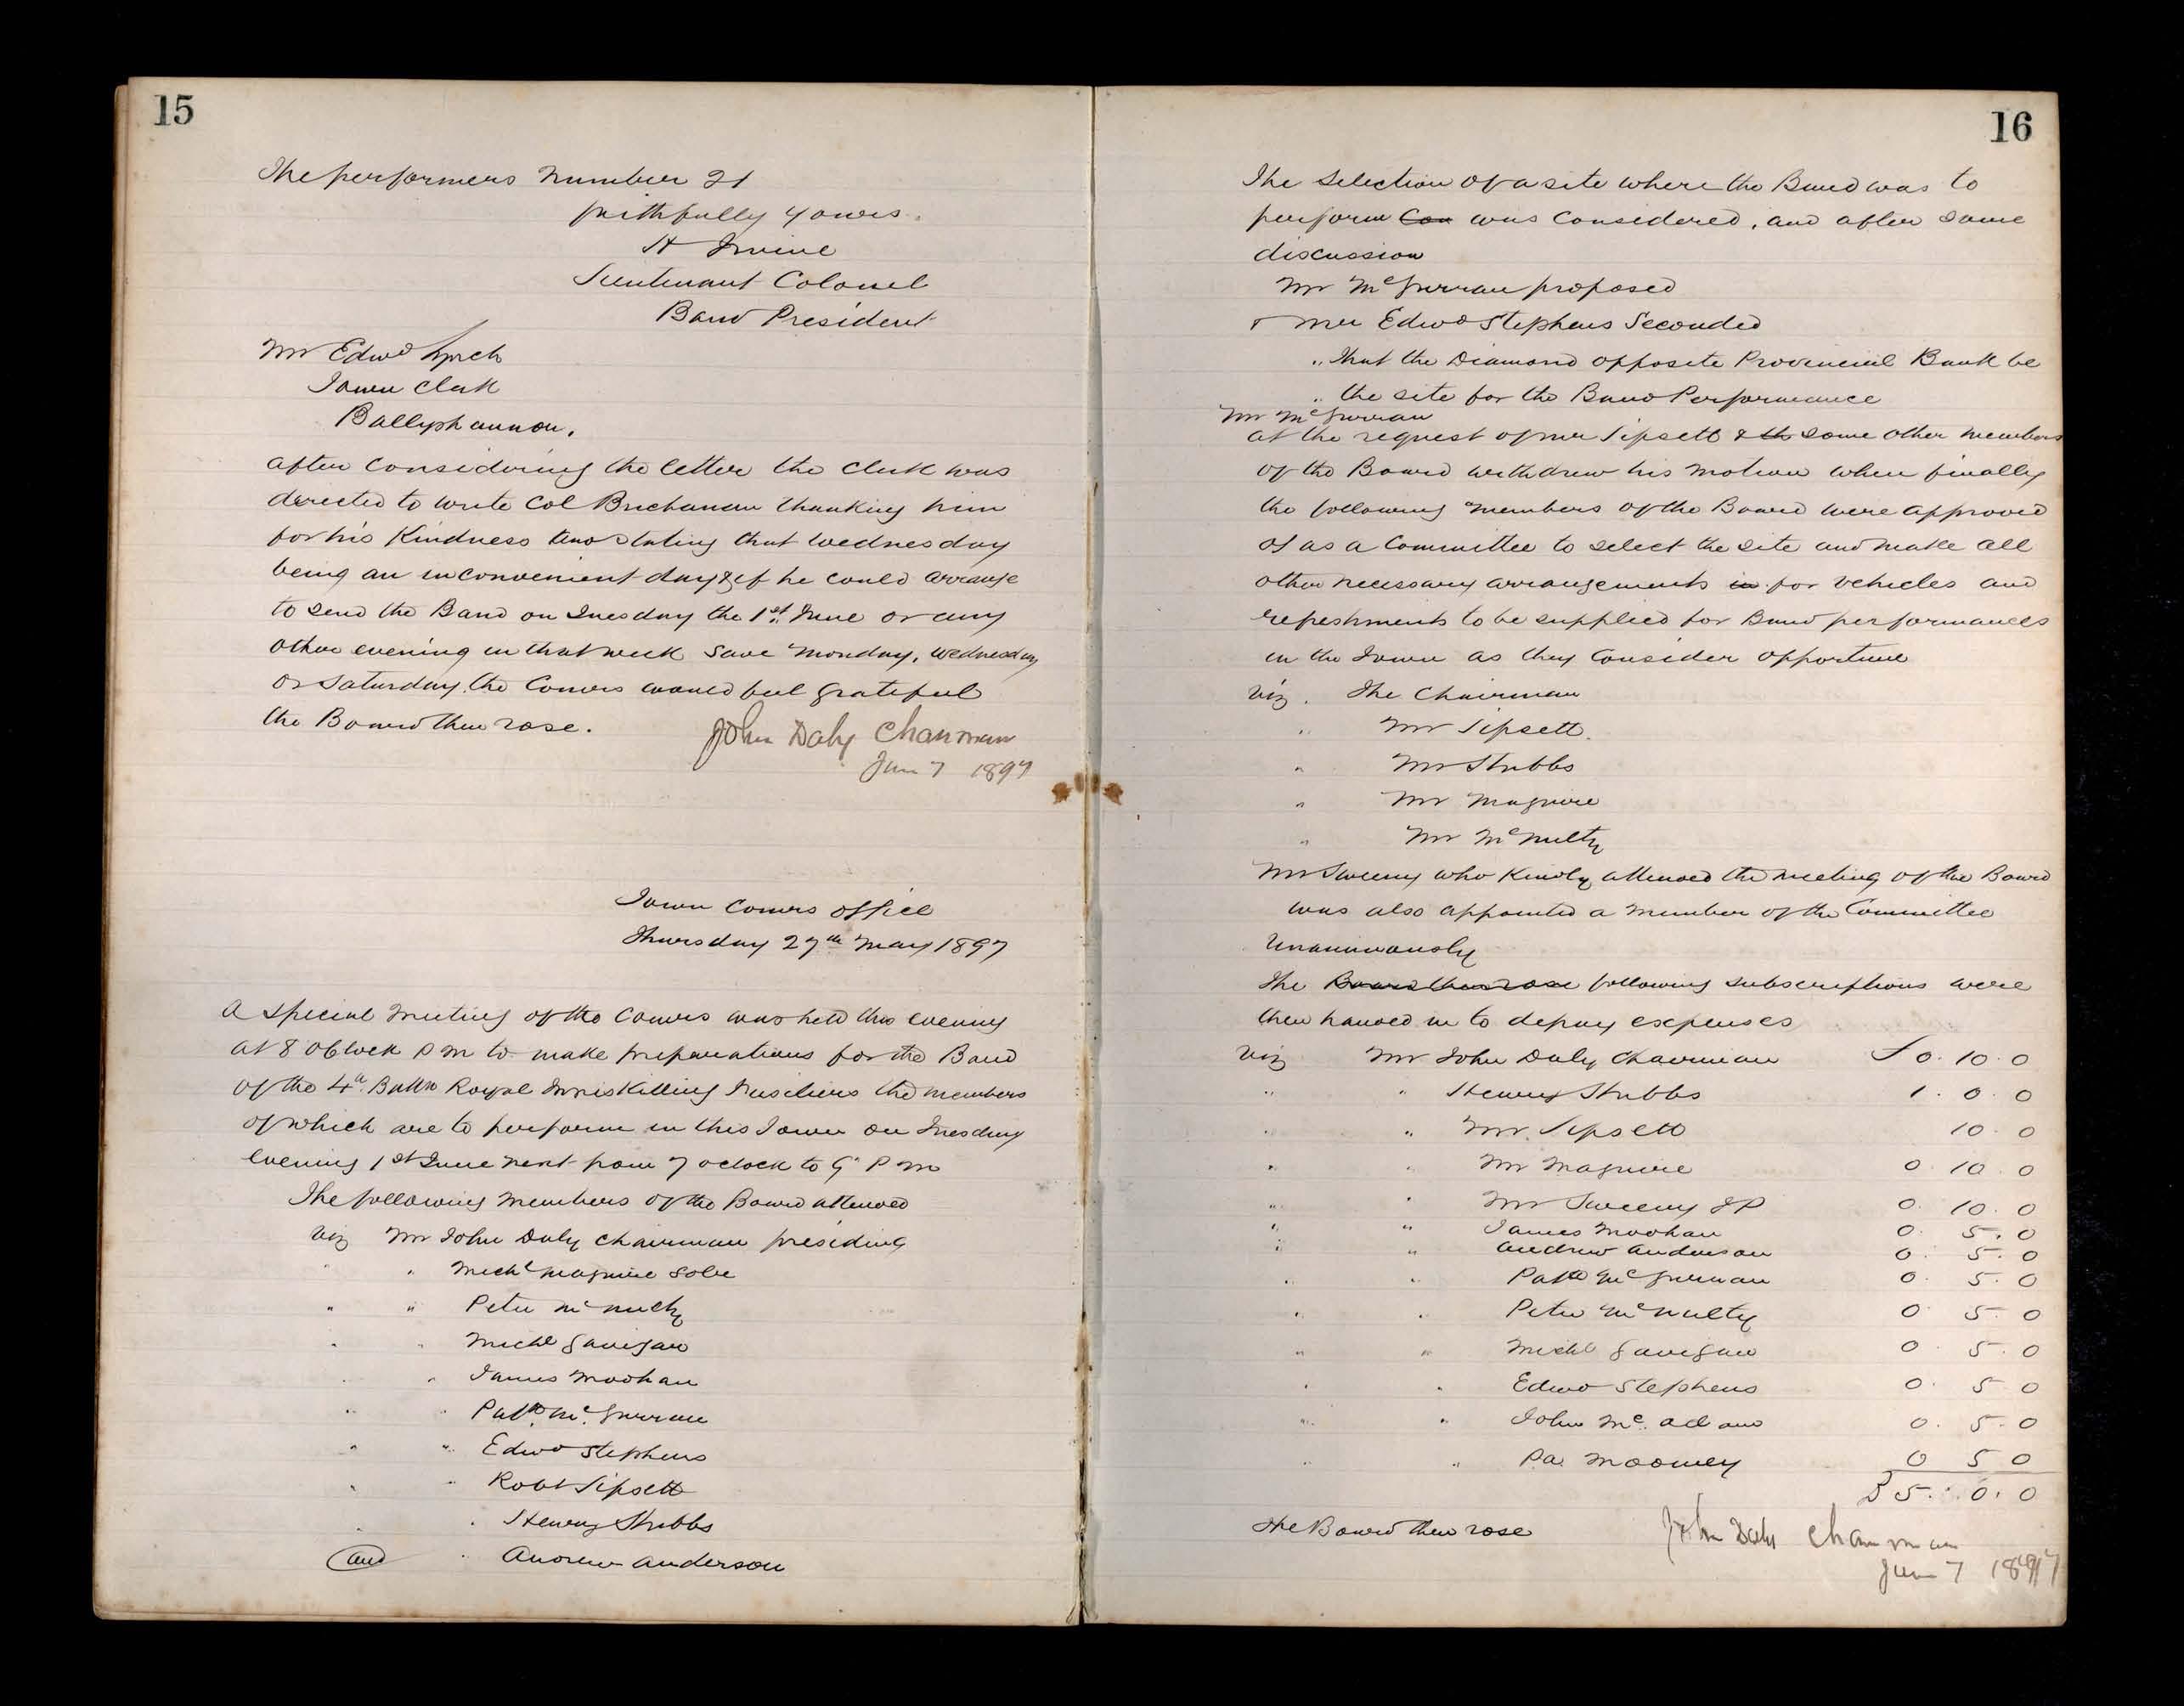 15
The performers number 21
faithfully yours.
H Irvine
Lieutenant Colonel
Band President
Mr Edwd Lynch
Town Clerk
Ballyshannon.
after considering the letter the clerk was
directed to write Col Buchanan thanking him
for his Kindness and stating that wednesday
being an inconvenient day & if he could arrange
to send the Band on Tuesday the 1st June or any
other evening in that week save Monday, Wednesday
or Saturday the Comrs would feel grateful
the Board then rose.
John Daly Chairman
June 7 1897
Town Comrs office
Thursday 27th May 1897
A special meeting of the Comrs was held this evening
at 8 oClock P M to make preparations for the Band
of the 4th Battn Royal Inniskilling Fusiliers the members
of which are to perform in this Town on Tuesday
evening 1st June next from 7 oclock to 9 P M
The following members of the Board attended
viz Mr John Daly Chairman presiding
" " Michl Maguire Solr
" " Peter McNulty
" " Michl Gavigan
" " James Moohan
" " Patk McGurran
" " Edwd Stephens
" " Robt Lipsett
" " Henry Stubbs
and " Andrew Anderson
16
The selection of a site where the Band was to
perform Con was considered, and after some
discussion
Mr McGurran proposed
& Mr Edwd Stephens Seconded
" That the Diamond opposite Provincial Bank be
" the site for the Band Performance
Mr McGurran
at the request of Mr Lipsett & th some other members
of the Board withdrew his motion when finally
the following members of the Board were approved
of as a Committee to select the site and make all
other necessary arrangements in for vehicles and
refreshments to be supplied for Band performances
in the Town as they consider opportune
viz. The Chairman
" Mr Lipsett.
" Mr Stubbs
" Mr Maguire
" Mr McNulty
Mr Sweeny who Kindly attended the meeting of the Board
was also appointed a member of the Committee
Unanimously
The Board then rose following subscriptions were
then handed in to defray expenses
viz Mr John Daly Chairman £0. 10. 0
" " Henry Stubbs 1. 0. 0
" " Mr. Lipsett 10. 0
" " Mr Maguire 0. 10. 0
" " Mr Sweeny JP 0. 10. 0
" " James Moohan 0. 5. 0
" " Andrew Anderson 0. 5. 0
" " Patk McGurran 0. 5. 0
" " Peter McNulty 0. 5. 0
" " Michl Gavigan 0. 5. 0
" " Edwd Stephens 0. 5. 0
" " John Mc Adam 0. 5. 0
" " Pa. Moohey 0 5 0
£5. 0. 0
The Board then rose
John Daly Chairman
June 7 1897